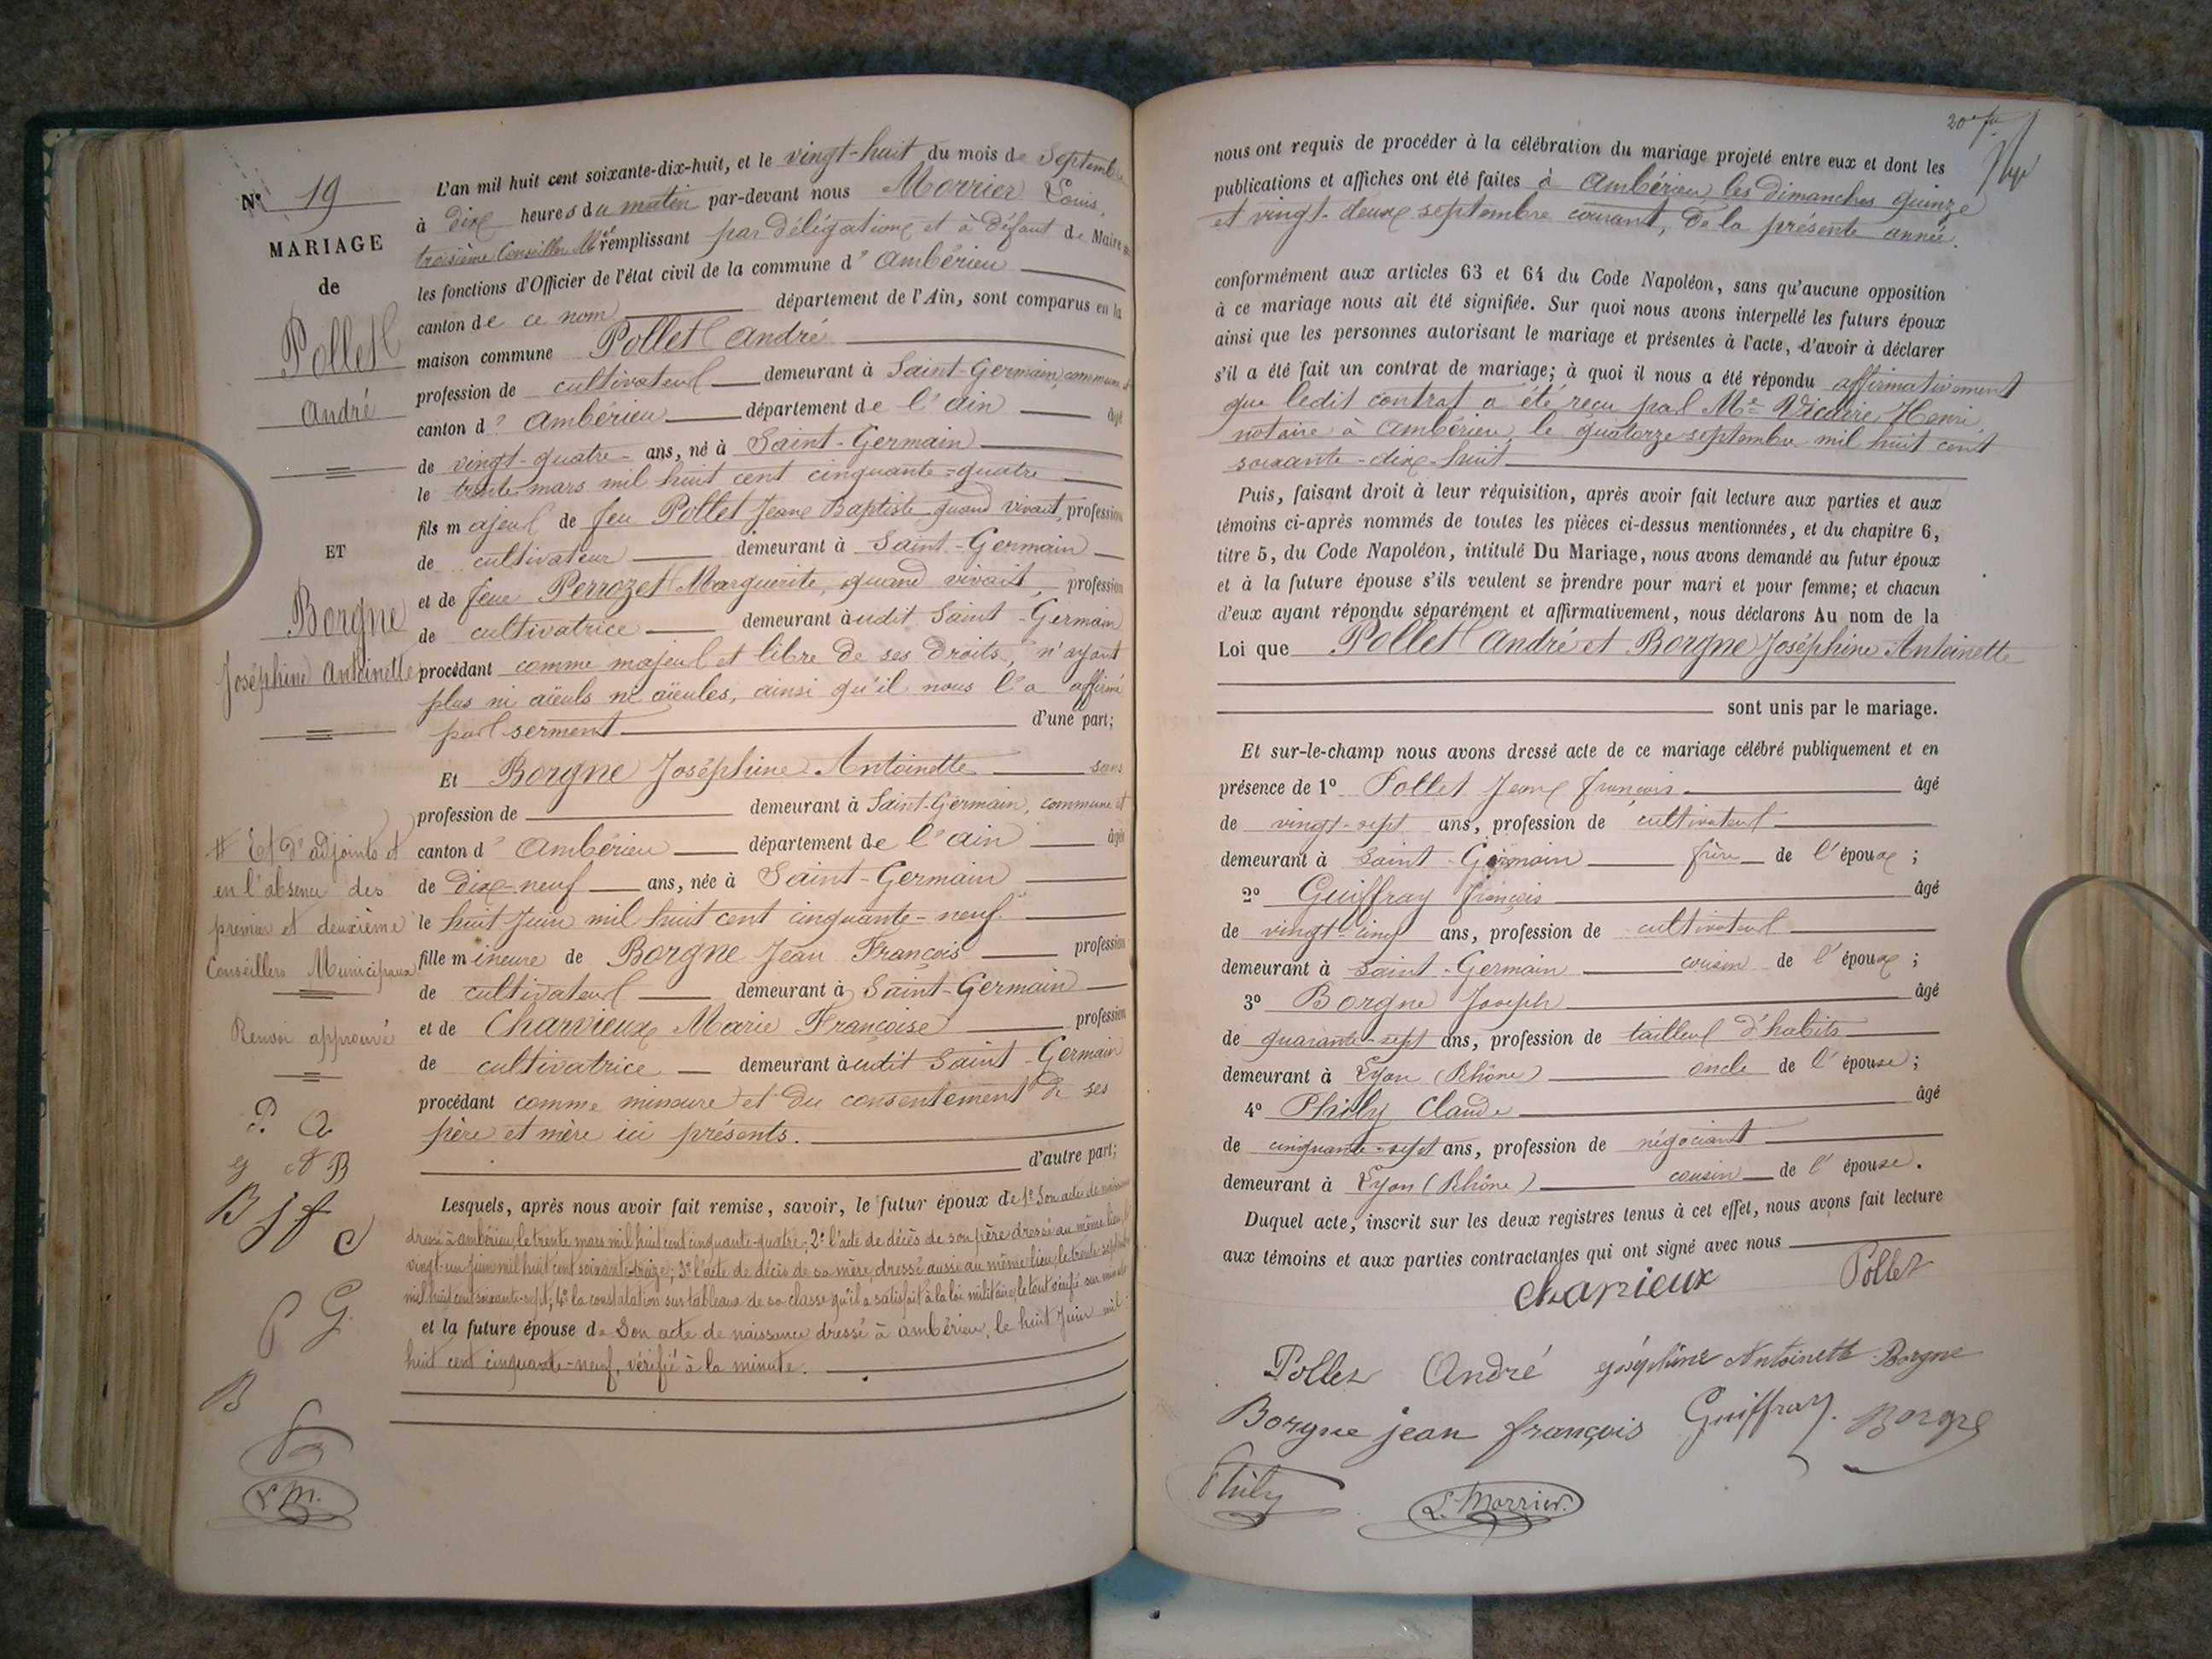 N° 19
MARIAGE
de
Pollet
André
ET
Borgne
Joséphine Antoinette
# Et d'adjoints et
en l'absence des
premier et deuxième
Conseillers Municipaux
Renvoi approuvé
P. A
J A B
B J f C
P G
B
L M.
L'an mil huit cent soixante-dix-huit, et le vingt-huit du mois de Septembre
à dix heures du matin par-devant nous Morrier Louis,
troisième Conseiller Mal remplissant par délégation et à défaut de Maire #
les fonctions d'Officier de l'état civil de la commune d'Ambérieu
canton de ce nom département de l'Ain, sont comparus en la
maison commune Pollet André
profession de cultivateur demeurant à Saint-Germain, commune et
canton d'Ambérieu département de l'ain âgé
de vingt-quatre ans, né à Saint-Germain
le trente mars mil huit cent cinquante-quatre
fils majeur de feu Pollet Jean Baptiste quand vivait, profession
de cultivateur demeurant à Saint-Germain
et de feue Perrozet Marguerite, quand vivait, profession
de cultivatrice demeurant audit Saint-Germain
procédant comme majeur et libre de ses droits, n'ayant
plus ni aïeuls ni aïeules, ainsi qu'il nous l'a affirmé
par serment d'une part;
Et Borgne Joséphine Antoinette sans
profession de demeurant à Saint-Germain, commune et
canton d'Ambérieu département de l'ain âgée
de dix-neuf ans, née à Saint-Germain
le huit Juin mil huit cent cinquante-neuf.
fille mineure de Borgne Jean François profession
de cultivateur demeurant à Saint-Germain
et de Charvieux Marie Françoise profession
de cultivatrice demeurant audit Saint-Germain
procédant comme mineure et du consentement de ses
père et mère ici présents.
d'autre part;
Lesquels, après nous avoir fait remise, savoir, le futur époux de 1° Son acte de naissance
dressé à ambérieu, le trente mars mil huit cent cinquante-quatre; 2° l'acte de décès de son père dressé au même lieu, le
vingt-un juin mil huit cent soixante-treize; 3° l'acte de décès de sa mère, dressé aussi au même lieu, le trente septembre
mil huit cent soixante-sept; 4° la constatation sur tableaux de sa classe qu'il a satisfait à la loi militaire, le tout vérifié sur minute
et la future épouse de Son acte de naissance dressé à ambérieu, le huit Juin mil
huit cent cinquante-neuf, vérifié à la minute.
20e
nous ont requis de procéder à la célébration du mariage projeté entre eux et dont les
publications et affiches ont été faites à Ambérieu, les Dimanches quinze
et vingt-deux septembre courant, de la présente année.
conformément aux articles 63 et 64 du Code Napoléon, sans qu'aucune opposition
à ce mariage nous ait été signifiée. Sur quoi nous avons interpellé les futurs époux
ainsi que les personnes autorisant le mariage et présentes à l'acte, d'avoir à déclarer
s'il a été fait un contrat de mariage; à quoi il nous a été répondu affirmativement
que ledit contrat a été reçu par Me Vicaire Henri,
notaire à Ambérieu, le quatorze septembre mil huit cent
soixante-dix-huit.
Puis, faisant droit à leur réquisition, après avoir fait lecture aux parties et aux
témoins ci-après nommés de toutes les pièces ci-dessus mentionnées, et du chapitre 6,
titre 5, du Code Napoléon, intitulé Du Mariage, nous avons demandé au futur époux
et à la future épouse s'ils veulent se prendre pour mari et pour femme; et chacun
d'eux ayant répondu séparément et affirmativement, nous déclarons Au nom de la
Loi que Pollet André et Borgne Joséphine Antoinette
sont unis par le mariage.
Et sur-le-champ nous avons dressé acte de ce mariage célébré publiquement et en
présence de 1° Pollet Jean François âgé
de vingt-sept ans, profession de cultivateur
demeurant à Saint-Germain frère de l'époux;
2° Guiffray François âgé
de vingt-cinq ans, profession de cultivateur
demeurant à Saint-Germain cousin de l'époux;
3° Borgne Joseph âgé
de quarante-sept ans, profession de tailleur d'habits
demeurant à Lyon (Rhône) oncle de l'épouse;
4° Phily Claude âgé
de cinquante-sept ans, profession de négociant
demeurant à Lyon (Rhône) cousin de l'épouse.
Duquel acte, inscrit sur les deux registres tenus à cet effet, nous avons fait lecture
aux témoins et aux parties contractantes qui ont signé avec nous
Charieux Pollet
Pollet André Joséphine Antoinette Borgne
Borgne jean françois Guiffray Borgne
Phily L. Morrier.